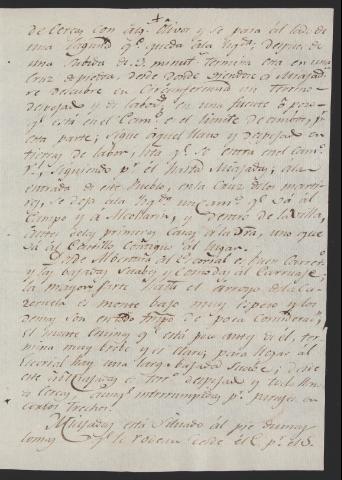 de Cercas con alg.s olivos y se pasa al lado de
una laguna q.e queda ala izq.da despues de
una subida de 3 minut.s termina esta en una
Cruz de piedra, desde donde
se descubre en Circunferencia un terreno
despejado y de labor; en una fuente ò pozo
q.e está en el Cam.o es el limite de ambos, p.r
esta parte; sigue aquel llano y despejado en
tierras de labor, hta q.e se entra en el cam.o
siguiendo p.r el hasta Miajadas; ala
entrada de este Pueblo, en la Cruz delos martires
se deja ala izq.da un cam.o q.e vá al
Campo y a Alcollarin, y dentro de la Villa,
antes delas primeras Casas ala dra, uno que
vá al Castillo contiguo al lugar.
Desde Abertura al Escorial es buen Carretero
y las bajadas suabes y comodas al Carruaje;
la mayor parte hasta el arroyo de la
es monte bajo muy espeso y los
demas son en todo tiempo de poca consideracn,
el puente q.e está poco antes de el
muy breve y es llano; para llegar al
Escorial hay una larga bajada suabe; desde
este á Miajadas el terr.o despejado y todo llano
á Cercas aunq.e interrumpidas p.r parajes en
cortos trechos.
Miajadas está situado al pie de unas
lomas q.e le rodean desde el E. p.r el S.